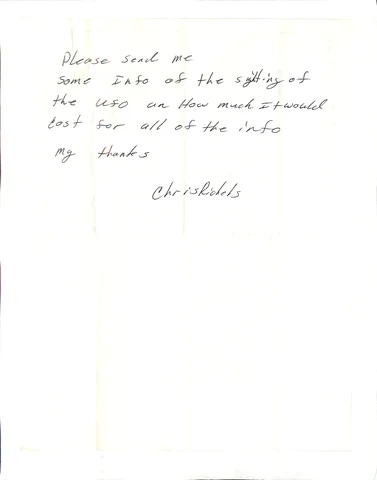 Please send me
some Info of the sighting of
the UFO an How much It would
Cost for all of the info
my thanks
Chris Rickels